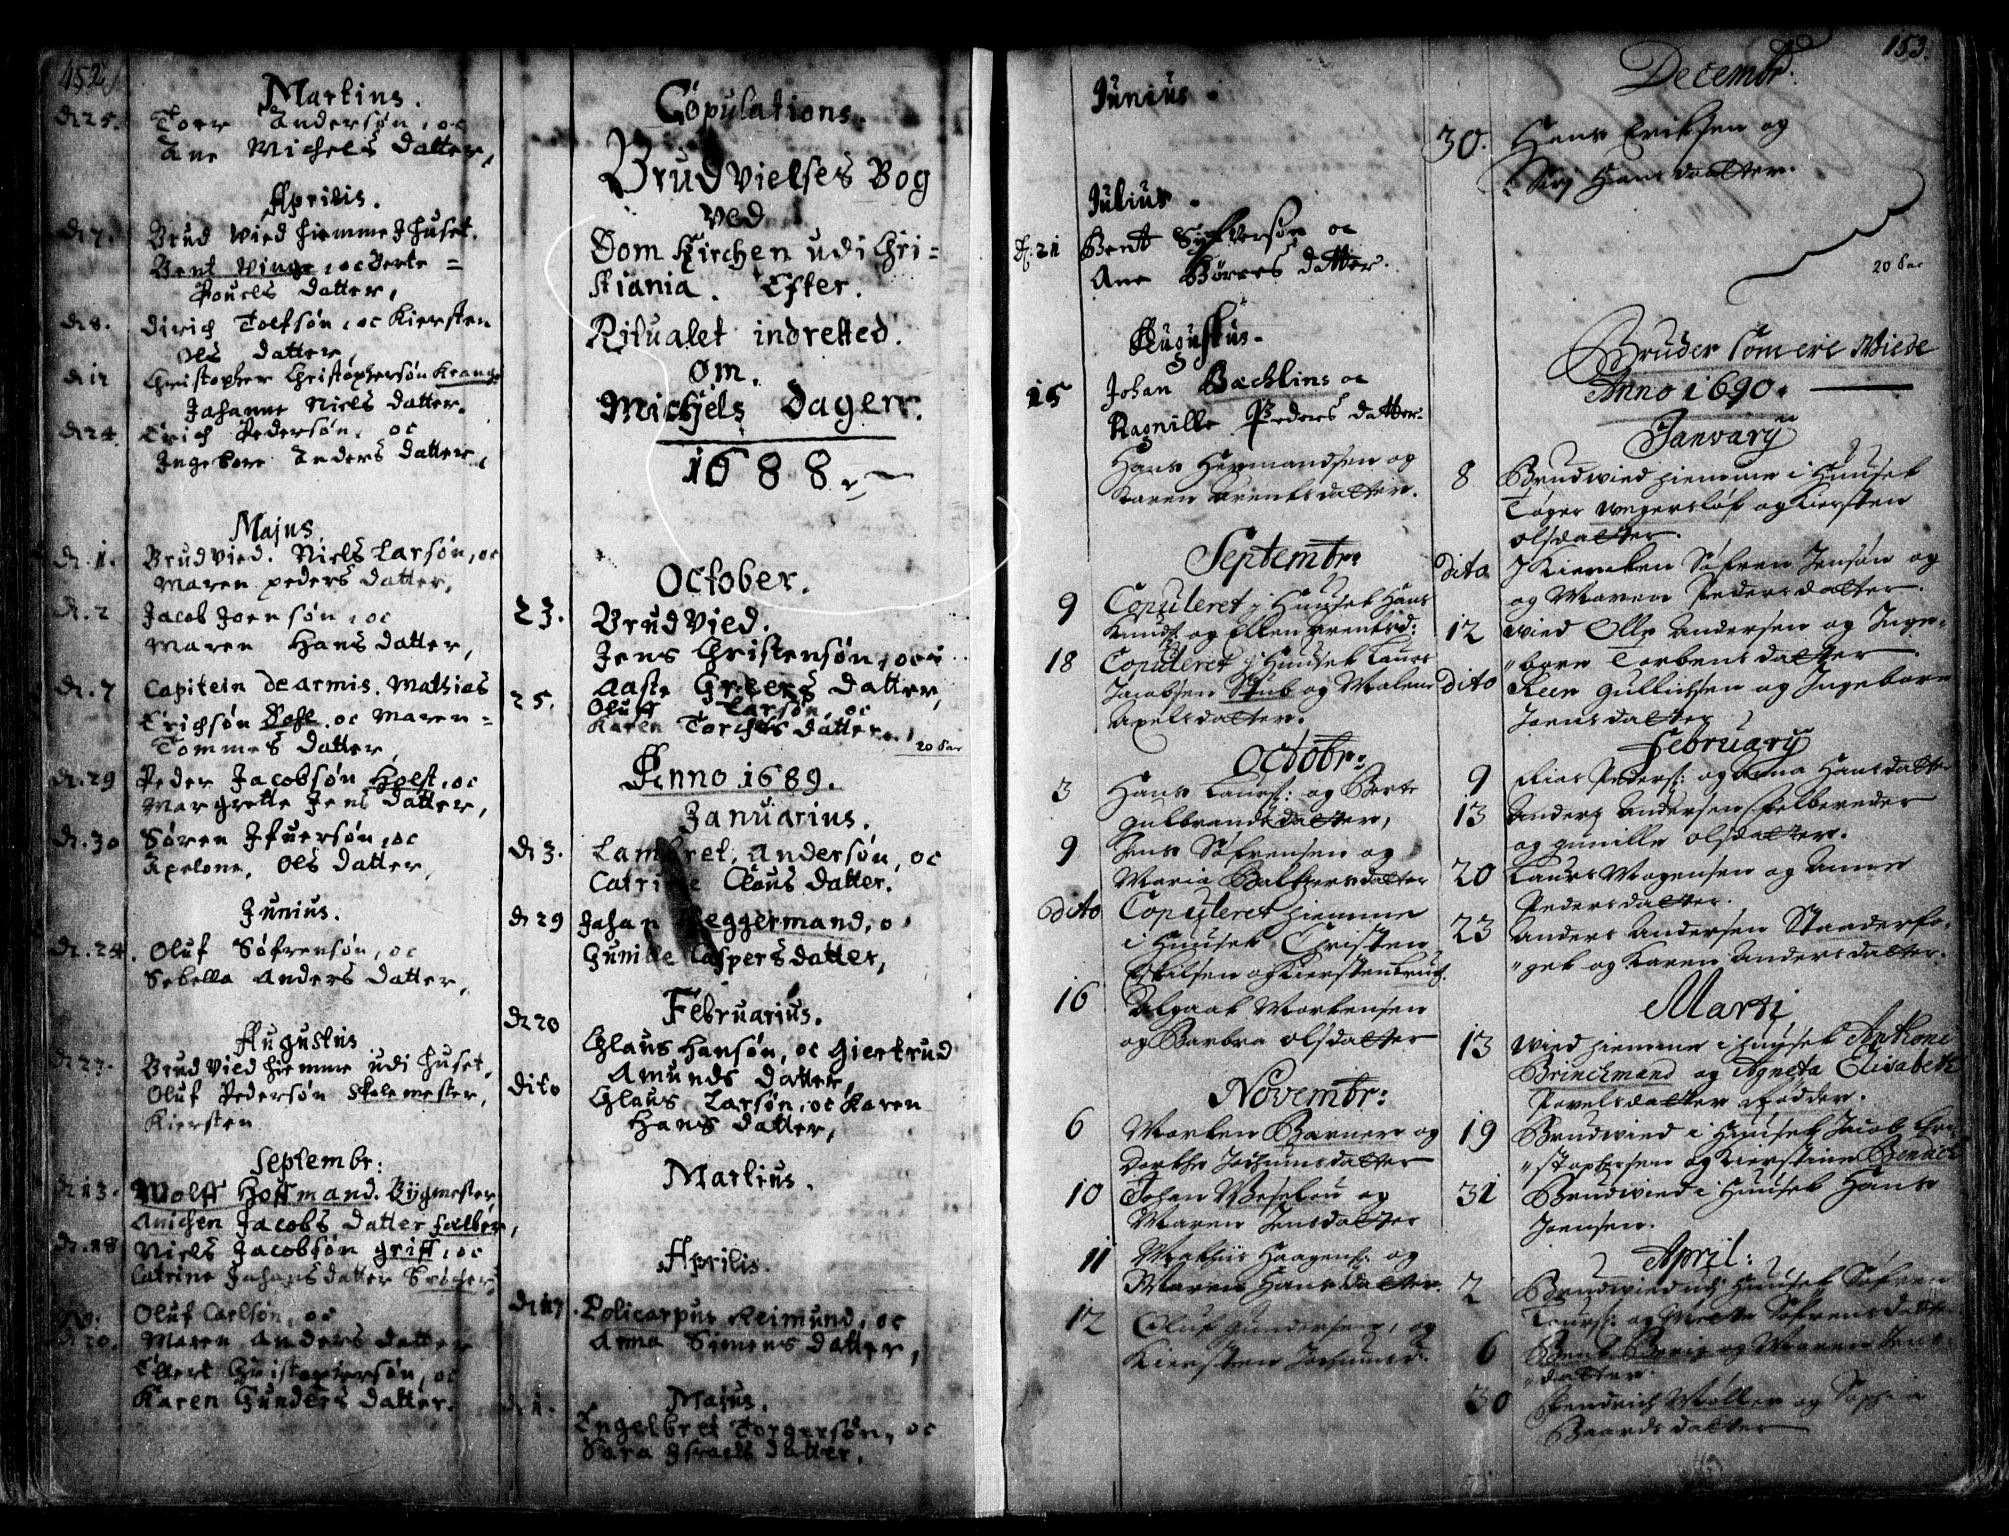 152
Martius.
d. 25. Toer Andersøn, oc
Ane Michels Datter,
Aprilis.
d. 7. Brud Vied hiemme J huset.
Bent Winge, oc Berte =
Pouels Datter,
d. 8. Dirich Toefsøn, oc Kiersten
Ols Datter,
Christopher Christophersøn Krang
Johanne Niels Datter.
d. 24. Erich Pedersøn, oc
Ingebore Anders Datter,
Majus
d. 1. Brudvied. Niels Larsøn, oc
Maren Peders Datter,
d. 2 Jacob Joensøn, oc
Maren Hans Datter,
d. 7 Capitein dearmis. Mathias
Erichsøn Dahl, oc Maren =
Tommes Datter,
d. 29 Peder Jacobsøn Holst, oc
Margrette Jens Datter,
d. 30 Søren Ifuersøn, oc
Apelone, Ols Datter,
Junius.
d. 24. Oluf Søfrensøn, oc
Sebella Anders Datter,
Augustus
Brudvied hiemme udi huset,
Oluf Pedersøn Skolemester,
Kiersten
Septembr:
d. 13. Wolff Hoffmand. Bygmester,
Anichen Jacobs Datter
d. 18 Niels Jacobsøn grift, oc
Catrine Johans datter
Oluf Carlsøn, oc
d. 20. Maren Anders Datter
Ebert Christophersøn, oc
Karen Gunders Datter.
Copulations.
Brudvielses Bog
ved
Dom Kirchen udi Chri=
stiania. Efter.
Ritualet indretted.
om.
Michels Dagen.
1688.
October.
23. Brudvied.
Jens Christensøn, oc
Aaste Greers Datter,
25. Oluff Larsøn, oc
Karen Torchels Datter.
20 Par
Anno 1689.
Januarius.
d. 3. Lambret Andersøn, oc
Catrine Clous Datter.
d. 29 Johan Heggermand, o
Gunille Caspers datter,
Februarius.
d. 20 Claus Hansøn, oc Giertrud
Amunds Datter,
Dito Claus Larsøn, oc Karen
Hans Datter,
Martius.
Aprilis.
d. 17. Policarpus Reimund, oc
Anna Simens Datter,
Majus.
Engelbret Torgersøn, oc
Sara Israels Datter.
153.
Junius.
Julius.
d. 21 Bent Syfversøn oc
Ane Børres datter.
Augustus.
15 Johan Bæchlins oc
Ragnille Peders datter.
Hans Hermandsen og
Karen Arentsdatter.
Septembr:
9 Copuleret j Huuset Hans
Knuds: og Ellen Arentsd:
18 Copuleret j Huuset Laurs
Jacobsen Stub og Malene
Axelsdatter.
Octobr:
3 Hans Laurs: og Berte
Gulbrandsdatter,
9 Jens Søfrensen og
Maria Baltzersdatter
Dito Copuleret hiemme
i Huuset Christen
Eskilsen og Kiersten
16 Aslaak Mortensen
og Barbra Olsdatter
Novembr:
6 Morten Barner og
Dorthe Jochumsdatter
10 Johan Weselou og
Maren Jensdatter
11 Mathiis Haagens: og
Maren Hansdatter.
12 Oluf Gundersen, og
Kiersten Jochumsd.
Decembr:
30. Hans Eriksen og
Siri Hansdaatter.
20 Par
Bruder som ere Wiede
Anno 1690.
Janvarij
8 Brudwied hiemme i Huuset
Tøger Wegersløf og Kiersten
Olsdatter.
dito J Kiercken Søfren Jensøn og
og Maren Pedersdatter.
12 wied Olle Andersen og Inge=
borre Torbensdatter.
dito Reer Gullichsen og Ingeborre
Joensdatter
Februarij
9 Peders: og Anna Hansdatter
13 Anders Andersen Felbereder
og Gunille Olsdatter.
20 Laurs Mogensen og Anne
Pedersdatter.
23 Anders Andersen Standerfo=
get og Karen Andersdatter.
Marti
13 wied hiemme i huuset Anthoni
Brinckmand og Agneta Elisabeth
Povelsdatter Rødder.
19 Brudwied i Huuset Jacob Chri=
stophersen og Kierstine Bennich
31 Brudwied i Huuset Hans
Joensen.
April:
2 Brudwied udj Huuset Søfren
Laurs: og Mette Søfrensdatter
6 Bent Berig og Maren Jens=
datter.
30 Hendrich Møller og Sophia
Baardsdatter